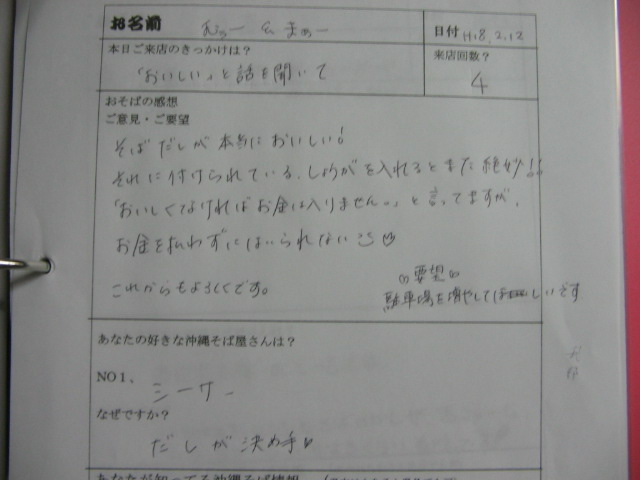 お名前 むぅー & まぁー 日付 H18.2.12
本日ご来店のきっかけは? 来店回数?
「おいしい」と話を聞いて 4
おそばの感想
ご意見・ご要望
そばだしが本当においしい!
それに付けられている、しょうがを入れるとまた絶妙!!
「おいしくなければお金は入りません。」と言ってますが、
お金を払わずにはいられない
これからもよろしくです。
要望
駐車場を増やしてほしいです
あなたの好きな沖縄そば屋さんは?
NO1、
シーサー
なぜですか?
だしが決め手
あなたが知ってる沖縄そば情報